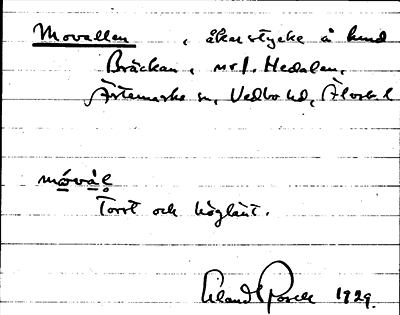 Movallen, åkerstycke å hmd
Bräckan, nr 1. Hedalen,
Ärtemarks sn, Vedbo hd, Älvsb. l
mo̱va̱l
Torrt och höglänt.
Erland Rosell 1929.